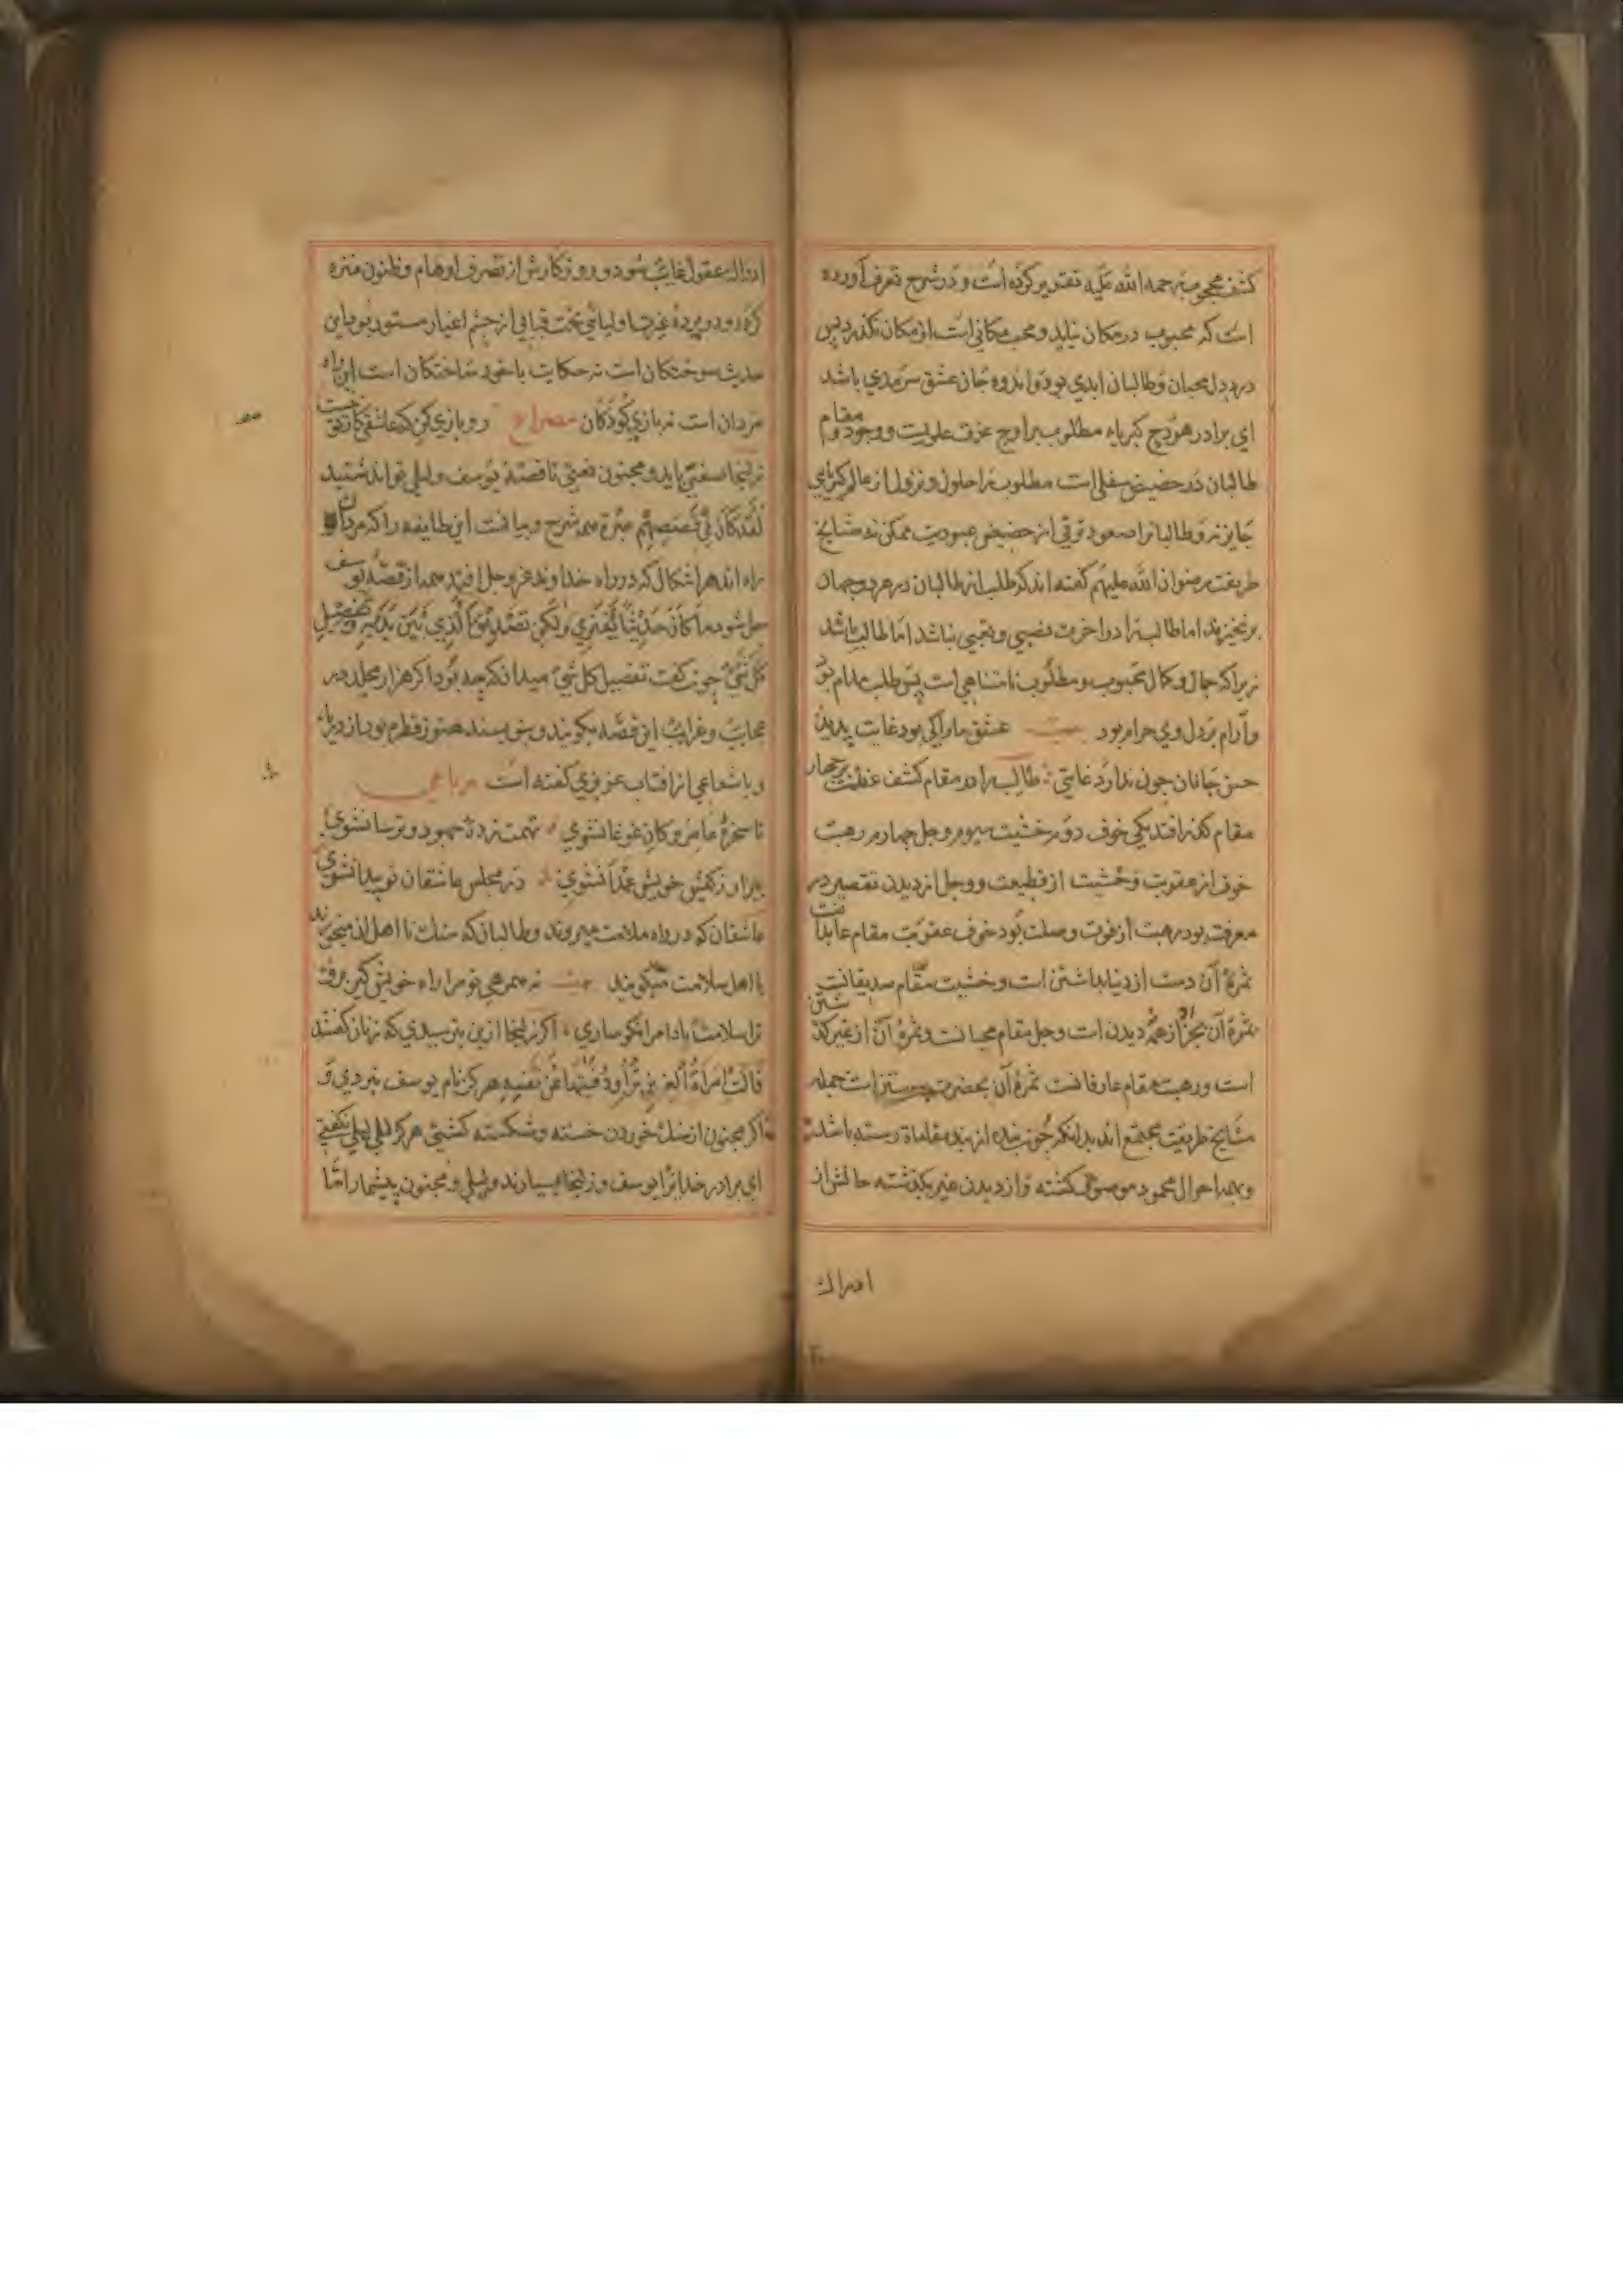 کشف محجوب رحمه الله علیه تقریر کرده است و در شرح تعرف آورده
است که محبوب در مکان نیاید و محب مکانی است از مکان نکذرد پس
درد دل محبان و طالبان ابدی بود و اندوه جان عشق سرمدی باشد
ای برادر هودج کبریاء مطلوب بر اوج عزت علویت و وجود و مقام
طالبان در حضیض سفلی است مطلوب را حلول و نزول از عالم کبریایی
جایز نه و طالبانرا صعود و ترقی از حضیض عبودیت ممکن نه مشایخ
طریقت رضوان الله علیهم کفته اند که طلب از طالبان در هر دو جهان
برنخیزند اما طالب را در آخرت نصیبی و تعبی نباشد اما طالب باشد
زیرا که جمال و کمال محبوب و مطلوب نامتناهی است پس طلب مدام بود
و آرام بر دل وی حرام بود بیت عشق ما را کی بود غایت پدید
حسن جانان چون ندارد غایتی طالب را در مقام کشف عظمت بر چهار
مقام کذر افتد یکی خوف دوم خشیت سیوم وجل چهارم رهبت
خوف از عقوبت و خشیت از قطیعت و وجل از دیدن تقصیر در
معرفت بود رهبت از فوت وصلت بود خوف عقوبت مقام عابدانست
ثمرهٔ آن دست از دنیا بداشتن است و خشیت مقام صدیقانست
ثمرهٔ آن بجز از همه دیدن است وجل مقام محبانست و ثمرهٔ آن از غیر کذشتن
است و رهبت مقام عارفانست ثمرهٔ آن بحضرت است جمله
مشایخ طریقت مجتمع اند بدانکه چون بنده از بند مقامات رسته باشد
و بهمه احوال محمود موصوف کشته و از دیدن غیر بکذشته حالش از
ادراک
ادراک عقول غایب شود و روزکارش از تصرف اوهام و ظنون منزه
کردد و در پردهٔ غیرت اولیائی تحت قبابی از چشم اغیار مستور بود این
حدیث سوختکان است نه حکایت با خود ساختکان است این راه
مردان است نه بازی کودکان مصراع رو بازی کن که عاشقی کار تو نیست
زلیخا صفتی باید و مجنون نعتی تا قصهٔ یوسف و لیلی تواند شنید
لَقَد کَانَ فی قَصَصِهِم عِبرَة همه شرح و بیانست این طایفه را که مردان
راه اند هر اشکالی که در راه خداوند عز و جل افتد همه از قصهٔ یوسف
حل شود مَا کَانَ حَدِیثاً یُفتَری وَلکِن تَصدِیقَ الَّذِی بَینَ یَدَیهِ وَتَفصِیلَ
کُلِّ شَیءٍ چون کفت تفصیل کل شیء میدانکه چه بود اکر هزار مجلد در
عجایب و غرایب این قصه بکویند و بنویسند هنوز قطره بود از دریا
و یا شعاعی از آفتاب عزیزی کفته است رباعی
تا سخرهٔ عامیزکان غوغا نشوی تهمت زدهٔ جهود و ترسا نشوی
بیزار ز کفش خویش عمدا نشوی در مجلس عاشقان تو پیدا نشوی
عاشقان که در راه ملامت میروند و طالبان که سنک نا اهل میخورند
با اهل سلامت میکویند بیت نه همرهی تو مرا راه خویش کیر برو
ترا سلامت بادا مرا نکوساری اکر زلیخا ازین بترسیدی که زنان کفتند
قَالَت اِمرَأَةُ العَزِیزِ تُرَاوِدُ فَتَیهَا عَن نَفسِهِ هرکز نام یوسف نبردی و
اکر مجنون از سنک خوردن خسته و شکسته کشتی هرکز لیلی لیلی نکفتی
ای برادر خدایرا یوسف و زلیخا بسیارند و لیلی و مجنون بیشمار اما